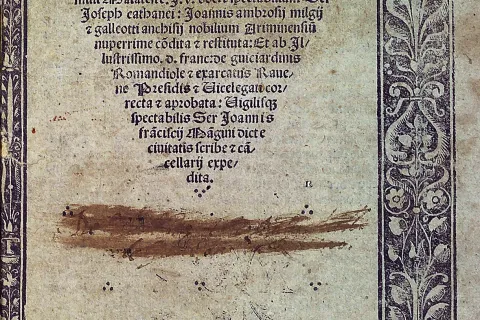 Joseph cathanei: Joannis ambrosij milgij
⁊ galleotti anchisij nobilium Ariminensiũ
nuperrime cõdita ⁊ restituta: Et ab Il/
lustrissimo. d. franc: de guiciardinis
Romandiole ⁊ exarcatis Raue/
ne Presidis ⁊ Uicelegati cor/
recta ⁊ aprobata: Uigilisq̃
spectabilis Ser Joannis
frãciscij Mãgini dicte
ciuitatis scribe ⁊ cã/
cellarij expe/
dita.